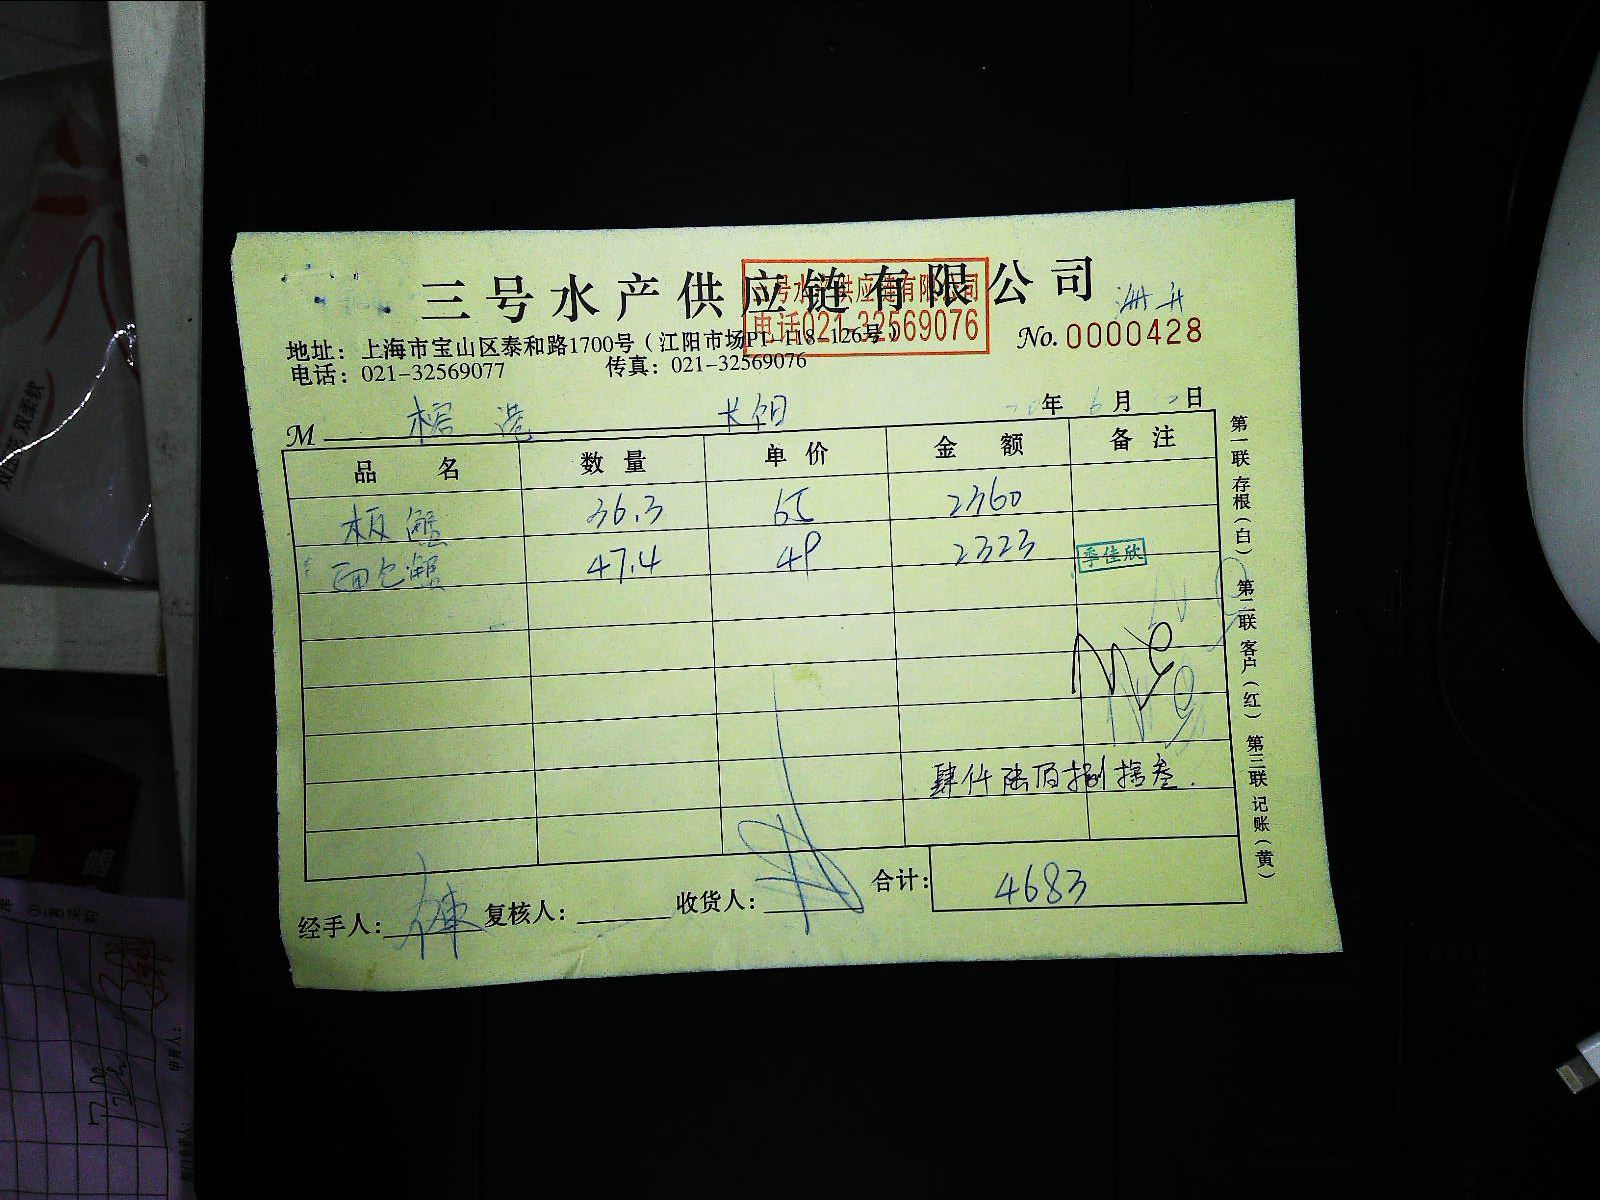 三号水产供应链有限公司
三号水产供应链有限公司
电话021-32569076
No. 0000428
地址：上海市宝山区泰和路1700号（江阳市场P1-118-126号）
电话：021-32569077 传真：021-32569076
年 6月 日
M 榕港
品名 数量 单价 金额 备注
板蟹 36.3 65 2360
面包蟹 47.4 49 2323
季佳欣
肆仟陆佰捌拾叁.
合计： 4683
经手人： 陈 复核人： 收货人：
第一联 存根（白） 第二联 客户（红） 第三联 记账（黄）
双柔软